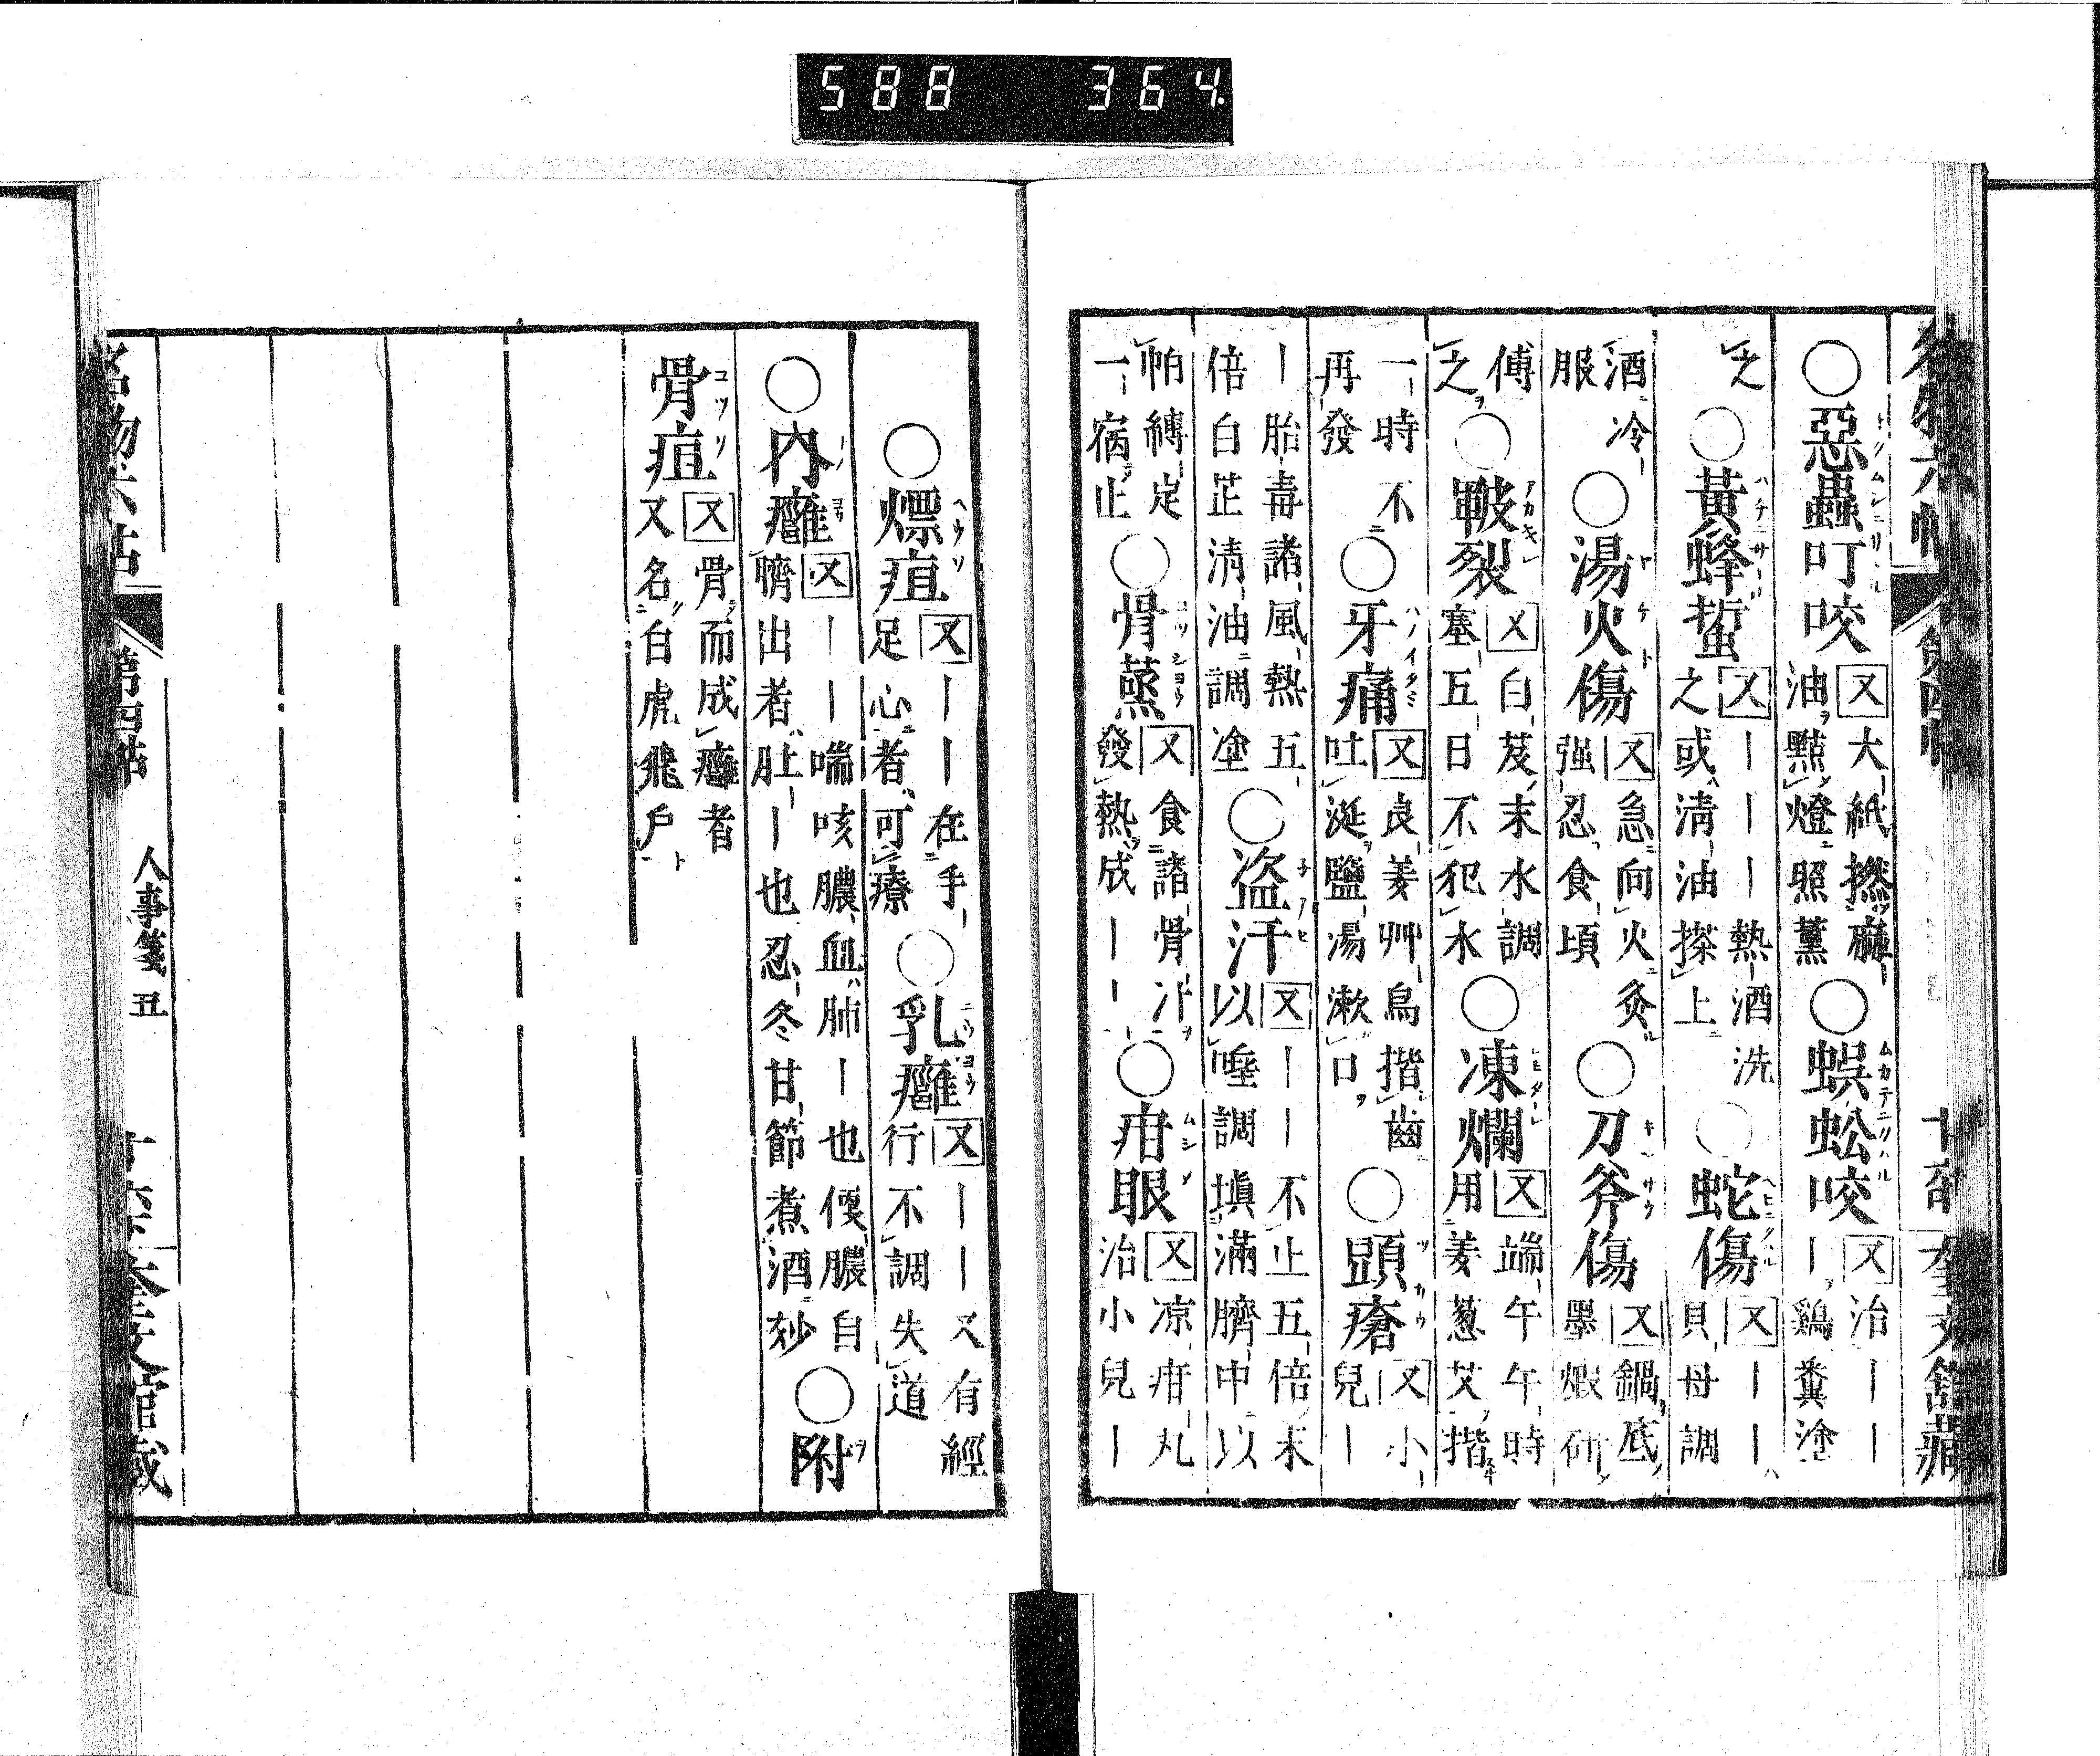 588 364
○惡蟲叮咬 又 大紙撚蔴油點燈照薰 ○蜈蚣咬 又 治丨丨丨鷄糞塗
之 ○黃蜂蜇 又 丨丨丨熱酒洗之或淸油搽上 ○蛇傷 又 丨丨貝母調
酒冷服 ○湯火傷 又 急向火灸强忍食頃 ○刀斧傷 又 鍋底墨煆硏
傅之 ○皸裂 又 白芨末水調塞五日不犯水 ○凍爛 又 端午午時用姜葱艾揩
一時不再發 ○牙痛 又 良姜艸烏揩齒吐涎鹽湯漱口 ○頭瘡 又 小兒丨
丨胎毒諸風熱五倍白芷淸油調塗 ○盗汗 又 丨丨不止五倍末以唾調塡滿臍中以
帕縛定一宿止 ○骨蒸 又 食諸骨汁發熱成丨丨 ○疳眼 又 凉疳丸治小兒丨
○熛疽 又 丨丨在手足心者可療 ○乳癰 又 丨丨又有經行不調失道
○內癰 又 丨丨喘咳膿血肺丨也便膿自臍出者肚丨也忍冬甘節煮酒妙 ○附
骨疽 又 骨而成癰者又名白虎飛尸
名物六帖 第四帖 人事箋五 奎文館藏